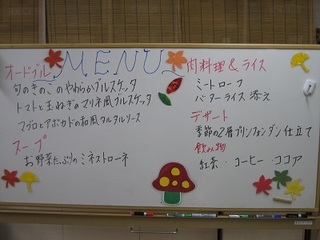 MENU
オードブル
旬のきのこのやわらかブルスケッタ
トマトと玉ねぎのマリネ風ブルスケッタ
マグロとアボカドの和風タルタルソース
スープ
お野菜たっぷりのミネストローネ
肉料理&ライス
ミートローフ
バターライス添え
デザート
季節の2層プリンフォンダン仕立て
飲み物
紅茶・コーヒー・ココア